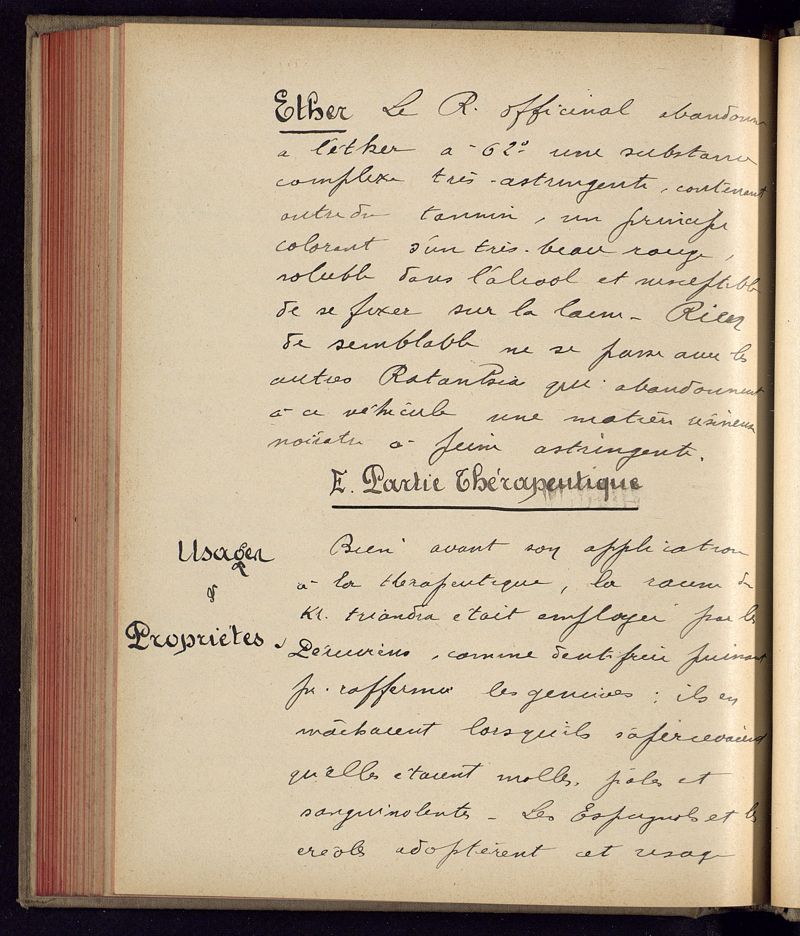 Ether Le R. officinal abandonne
a l'éther a 62° une substance
complexe très-astringente, contenant
outre du tannin, un principe
colorant d'un très-beau rouge,
soluble dans l'alcool et susceptible
de se fixer sur la laine - Rien
de semblable ne se passe avec les
autres Ratanhia qui abandonnent
à ce véhicule une matière résineuse
noirâtre à peine astringente.
E. Partie Thérapeutique
Usages
&
Propriétés
Bien avant son application
à la thérapeutique, la racine du
Kr. triandra était employée par les
Péruviens, comme dentifrice puissant
pr. raffermir les gencives : ils en
mâchaient lorsqu'ils s'apercevaient
qu'elles étaient molles, pâles et
sanguinolentes - Les Espagnols et les
créoles adoptèrent cet usage